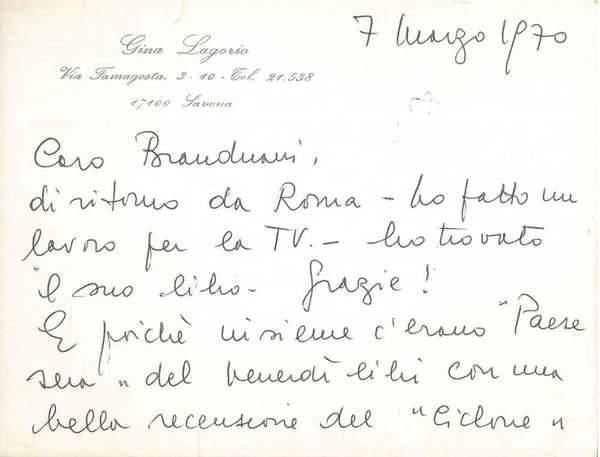 7 Marzo 1970
Gina Lagorio
Via Famagosta. 3 - 10 - Tel. 21.538
17100 Savona
Caro Branduani,
di ritorno da Roma - ho fatto un
lavoro per la TV. - ho trovato
il suo libro - Grazie!
E poichè insieme c'erano "Paese
sera" del venerdì libri con una
bella recensione del "Ciclone"